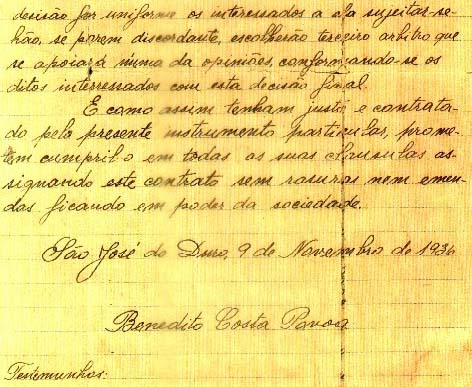 decisão for uniforme os interessados a ela sujeitar-se-
hão, se porem discordante, escolherão terceiro arbitro que
se apoiará numa da opiniões, conformando-se os
ditos interressados com esta decisão final.
E como assim tenham justo e contrata-
do pelo presente instrumento particular, prome-
tem cumpril o em todas as suas clausulas as-
signando este contrato sem rasuras nem emen-
das ficando em poder da sociedade.
São José do Duro, 9 de Novembro de 1936
Benedito Costa Pavoa
Testemunhas: